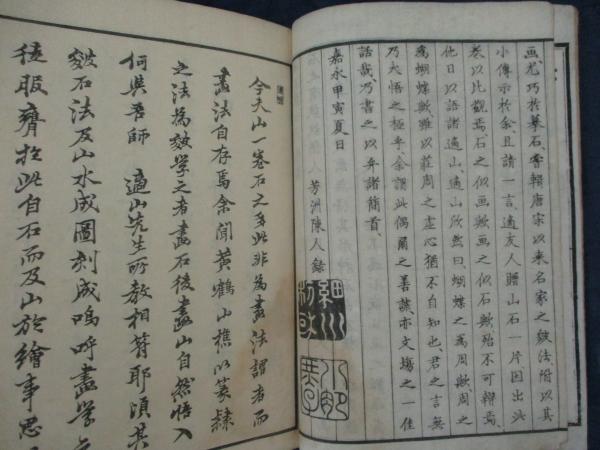 画尤巧於摹石嘗輯唐宗以来名家之皴法附以其
小傳示於余且請一言適友人贈山石一片因出此
巻以比觀焉石之似画歟画之似石歟殆不可辨焉
他日以語諸適山適山欣然曰蝴蝶之為周歟周之
為蝴蝶歟雖以莊周之虚心猶不自知也君之言無
乃大悟之極乎余謂此偶爾之善謔亦文塲之一佳
話哉乃書之以弁諸簡首
嘉永甲寅夏日
芳洲陳人録
今夫山一巻石之多此非為畫法謂者而
畫法自存焉余聞黄鶴山樵以篆隷
之法為皴學之者畫石後畫山自然悟入
何與吾師 適山先生所教相符耶頃其
皴石法及山水成圖刻成嗚呼畫學
種服膺於此自石而及山於繪事思